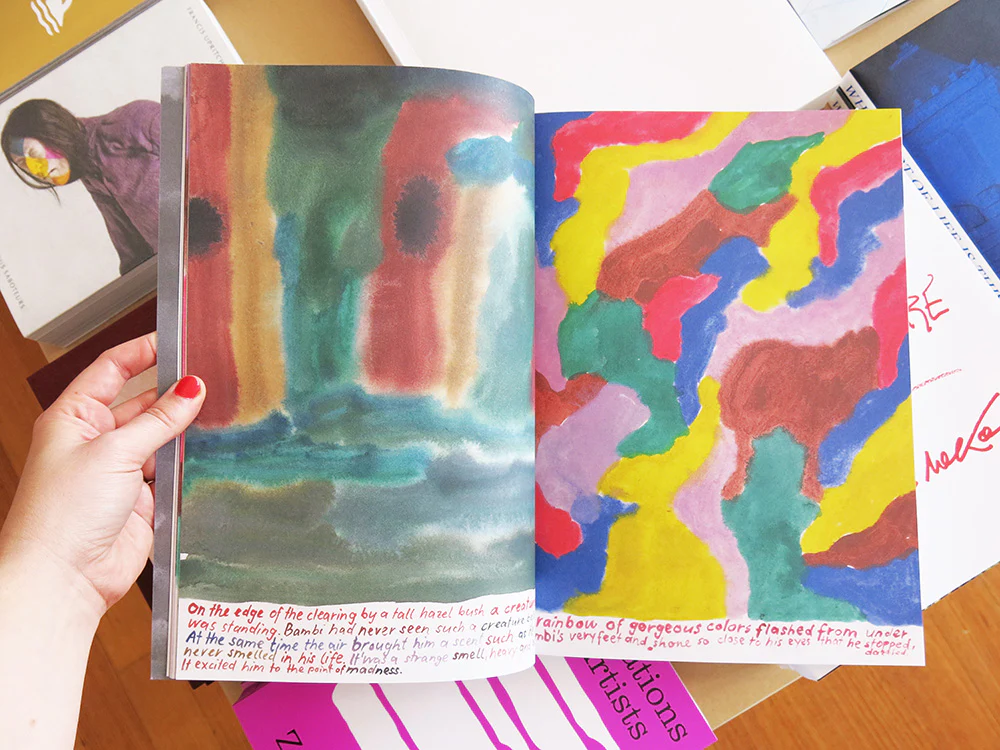 FRANCIS UPRITCH
SABOTEURS
On the edge of the clearing by a tall hazel bush a
was standing. Bambi had never seen such a creature
At the same time the air brought him a scent such as
never smelled in his life. It was a strange smell, heavy
It excited him to the point of madness.
rainbow of gorgeous colors flashed from under
very feet and shone so close to his eyes that he stopped,
dazzled.
OF LIFE IS
RE
ations
rtists
Z